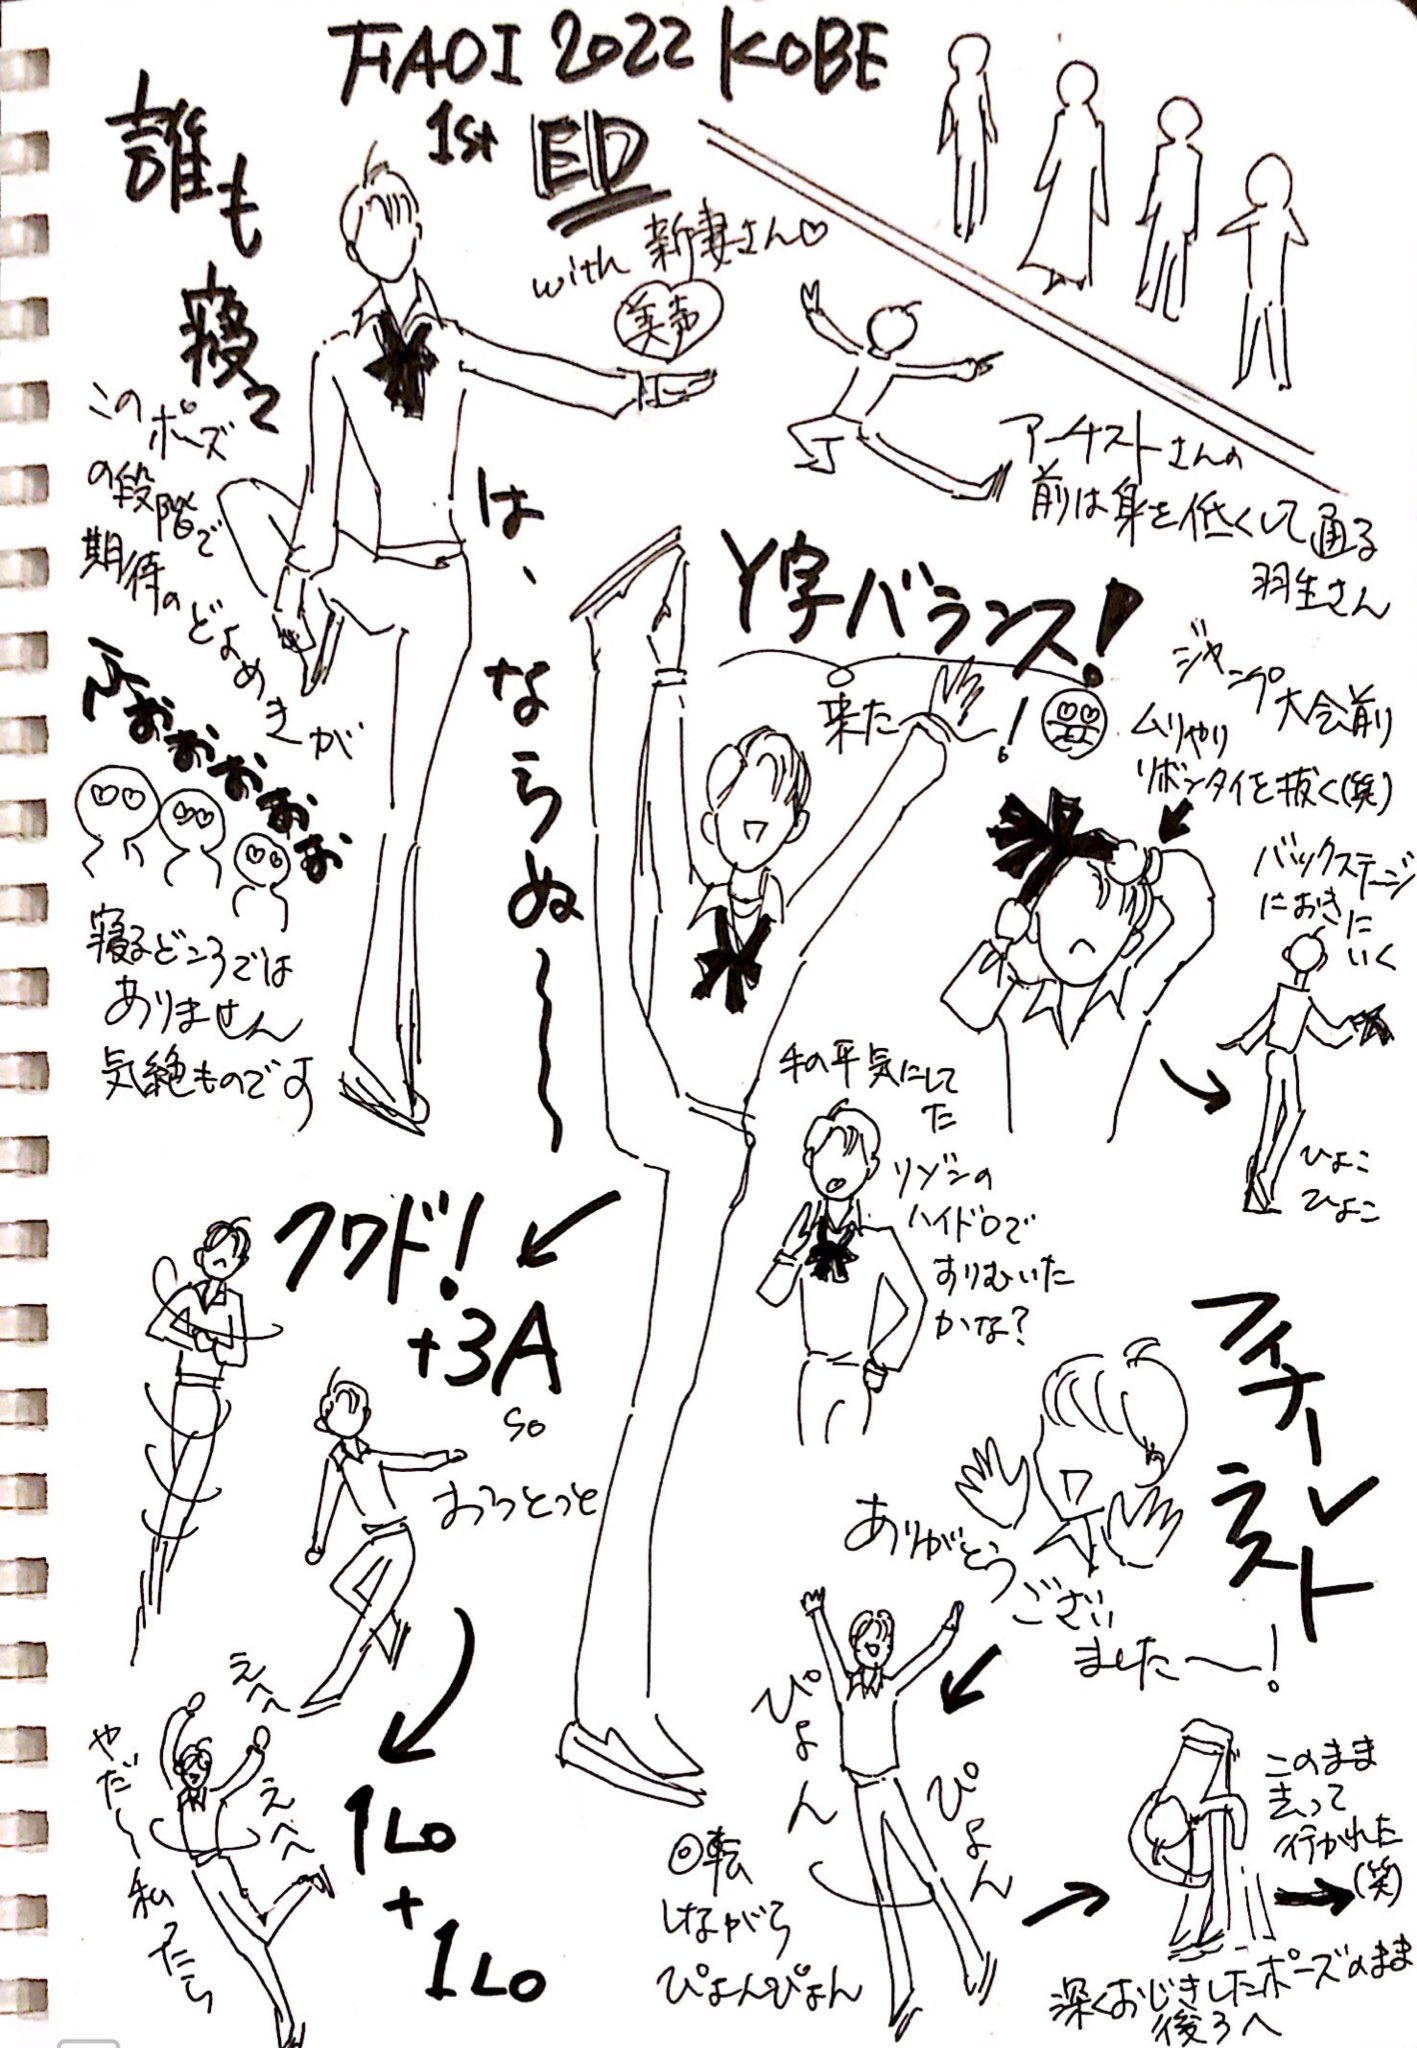 FIAOI 2022 KOBE
1st ED
with 新妻さん♡
美声
誰も寝ては、ならぬ〜
このポーズ
の段階で
期待の
どよめきが
ふぉぉぉぉぉぉ
寝るどころでは
ありません
気絶ものです
アーチストさんの
前は身を低くして通る
羽生さん
Y字バランス!
来た〜!
ジャンプ大会前
ムリやり
リボンタイを抜く(笑)
バックステージ
におきに
いく
ひょこ
ひょこ
手の平気にして
た
リゾンの
ハイドロで
すりむいた
かな?
クワド!
+3A
so
おっとっと
1Lo
+
1Lo
えへへ
えへへ
やだ〜私ったら
フィナーレ
ラスト
ありがとう
ござい
ました〜!
ぴょん
ぴょん
◎転
しながら
ぴょんぴょん
このまま
去って
行かれた
(笑)
深くおじぎしたポーズのまま
後ろへ